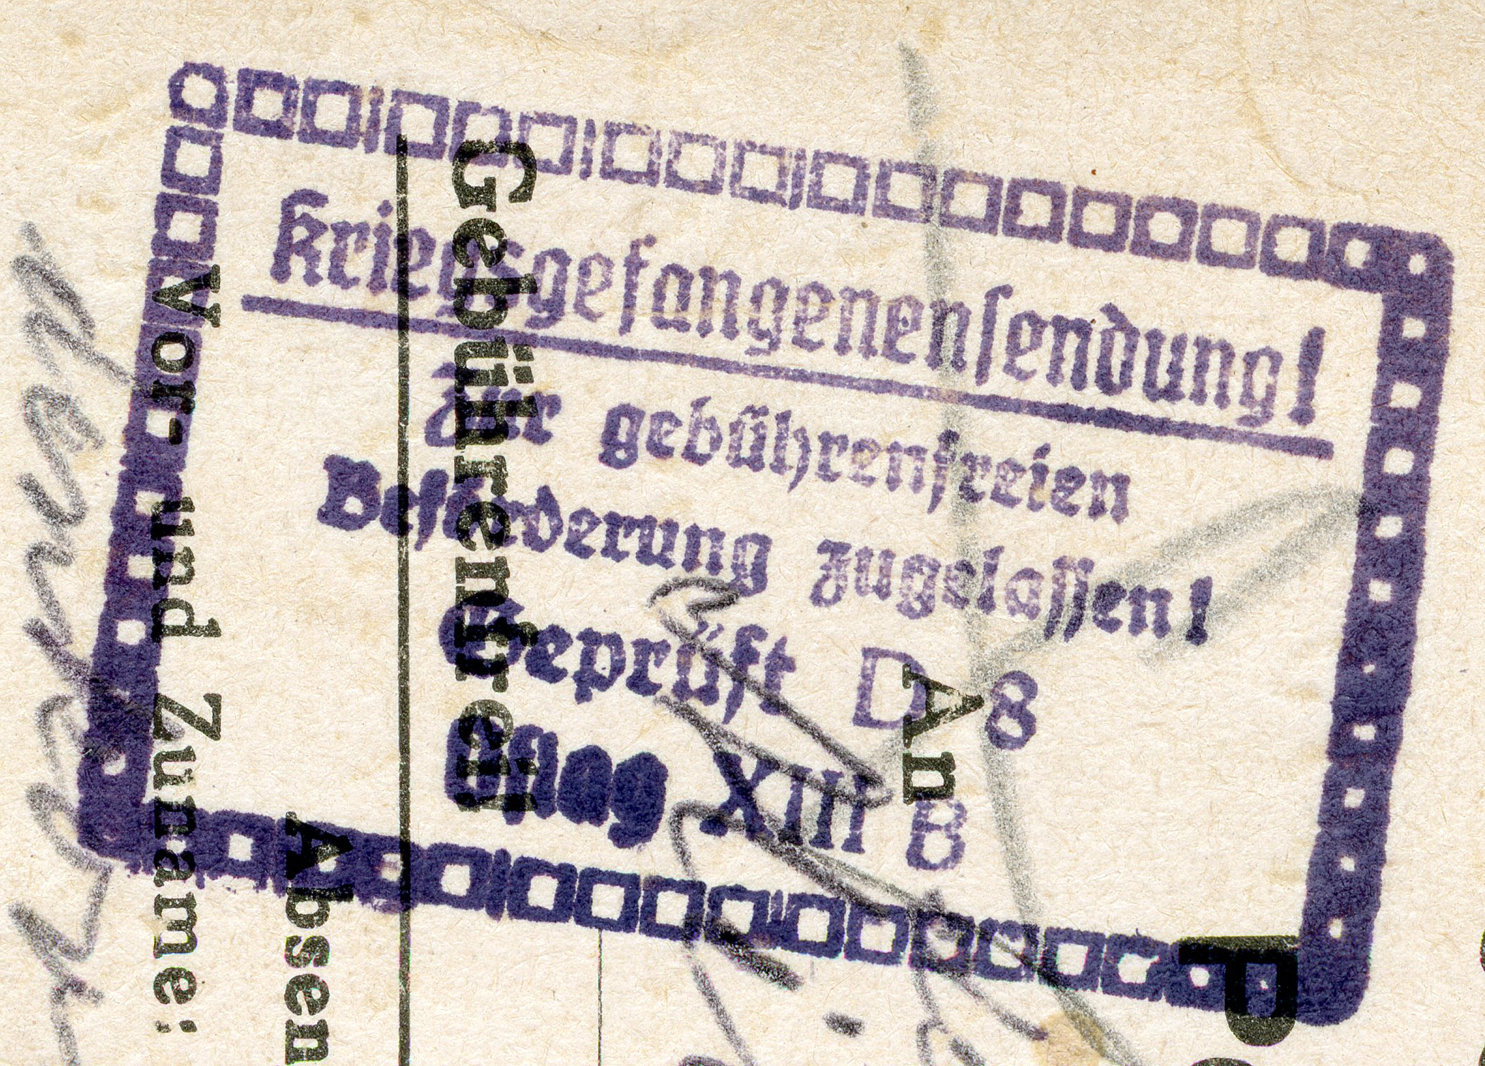 Kriegsgefangenensendung!
Zur gebührenfreien
Beförderung zugelassen!
Geprüft D 8
Oflag XIII B
Gebührenfrei!
Vor- und Zuname:
Absen
An